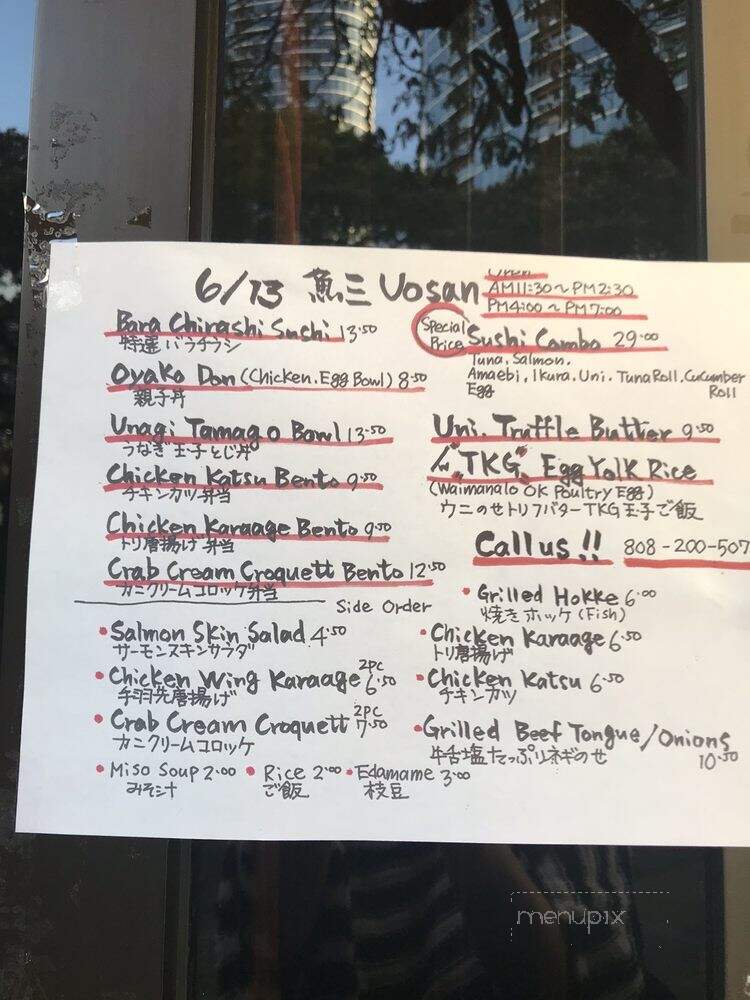 6/13 魚三 Uosan
Open
AM11:30～PM2:30
PM4:00～PM7:00
Bara Chirashi Sushi 13.50
特選 バラチラシ
Oyako Don (Chicken. Egg Bowl) 8.50
親子丼
Unagi Tamago Bowl 13.50
うなぎ玉子とじ丼
Chicken Katsu Bento 9.50
チキンカツ弁当
Chicken Karaage Bento 9.50
トリ唐揚げ弁当
Crab Cream Croquett Bento 12.50
カニクリームコロッケ弁当
Special Price
Sushi Combo 29.00
Tuna. Salmon.
Amaebi. Ikura. Uni. Tuna Roll. Cucumber Roll
Egg
Uni. Truffle Butter 9.50
"TKG" Egg Yolk Rice
(Waimanalo OK Poultry Egg)
ウニのせトリフバターTKG玉子ご飯
Call us!! 808-200-507
Side Order
• Salmon Skin Salad 4.50
サーモンスキンサラダ
• Chicken Wing Karaage 2pc 6.50
手羽先唐揚げ
• Crab Cream Croquett 2pc 7.50
カニクリームコロッケ
• Miso Soup 2.00 • Rice 2.00 • Edamame 3.00
みそ汁 ご飯 枝豆
• Grilled Hokke 6.00
焼きホッケ (Fish)
• Chicken Karaage 6.50
トリ唐揚げ
• Chicken Katsu 6.50
チキンカツ
• Grilled Beef Tongue/Onions
牛舌塩たっぷりネギのせ 10.50
menupix